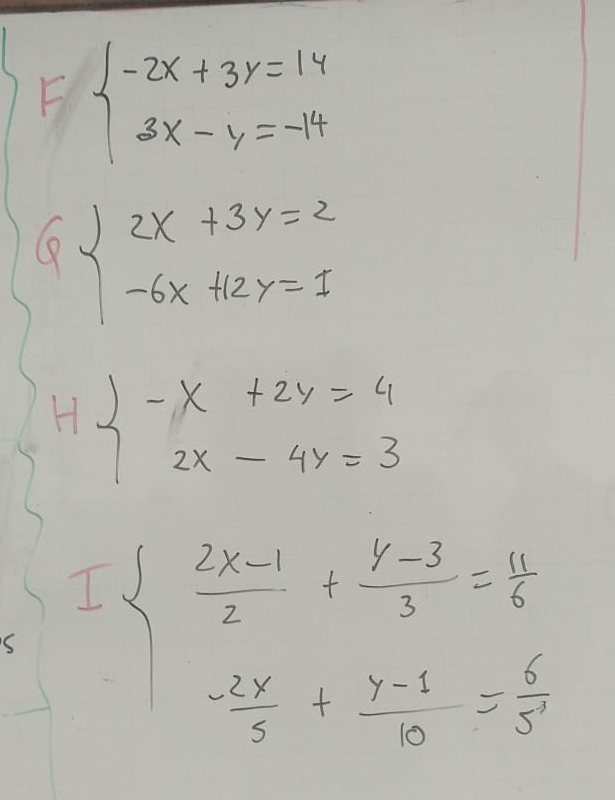 F { -2x + 3y = 14
3x - y = -14
G { 2x + 3y = 2
-6x + 12y = 1
H { -x + 2y = 4
2x - 4y = 3
I { (2x-1)/2 + (y-3)/3 = 11/6
-2x/5 + (y-1)/10 = 6/5